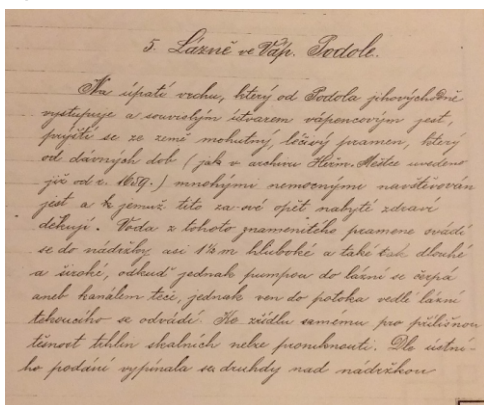 5. Lázně ve Váp. Podole.
Na úpatí vrchu, který od Podola jihovýchodně
vystupuje a souvislým útvarem vápencovým jest,
prýští se ze země mohutný, léčivý pramen, který
od dávných dob (jak v archivu Heřm. Městce uvedeno
již od r. 1659.) mnohými nemocnými navštěvován
jest a k jemuž tito za své opět nabyté zdraví
děkují. Voda z tohoto znamenitého pramene svádí
se do nádržky asi 1½ m hluboké a také tak dlouhé
a široké, odkudž jednak pumpou do lázní se čerpá
aneb kanálem teče, jednak ven do potoka vedle lázní
tekoucího se odvádí. Ke zřídlu samému pro přílišnou
těsnost trhlin skalních nelze proniknouti. Dle ústní-
ho podání vypínala se druhdy nad nádržkou